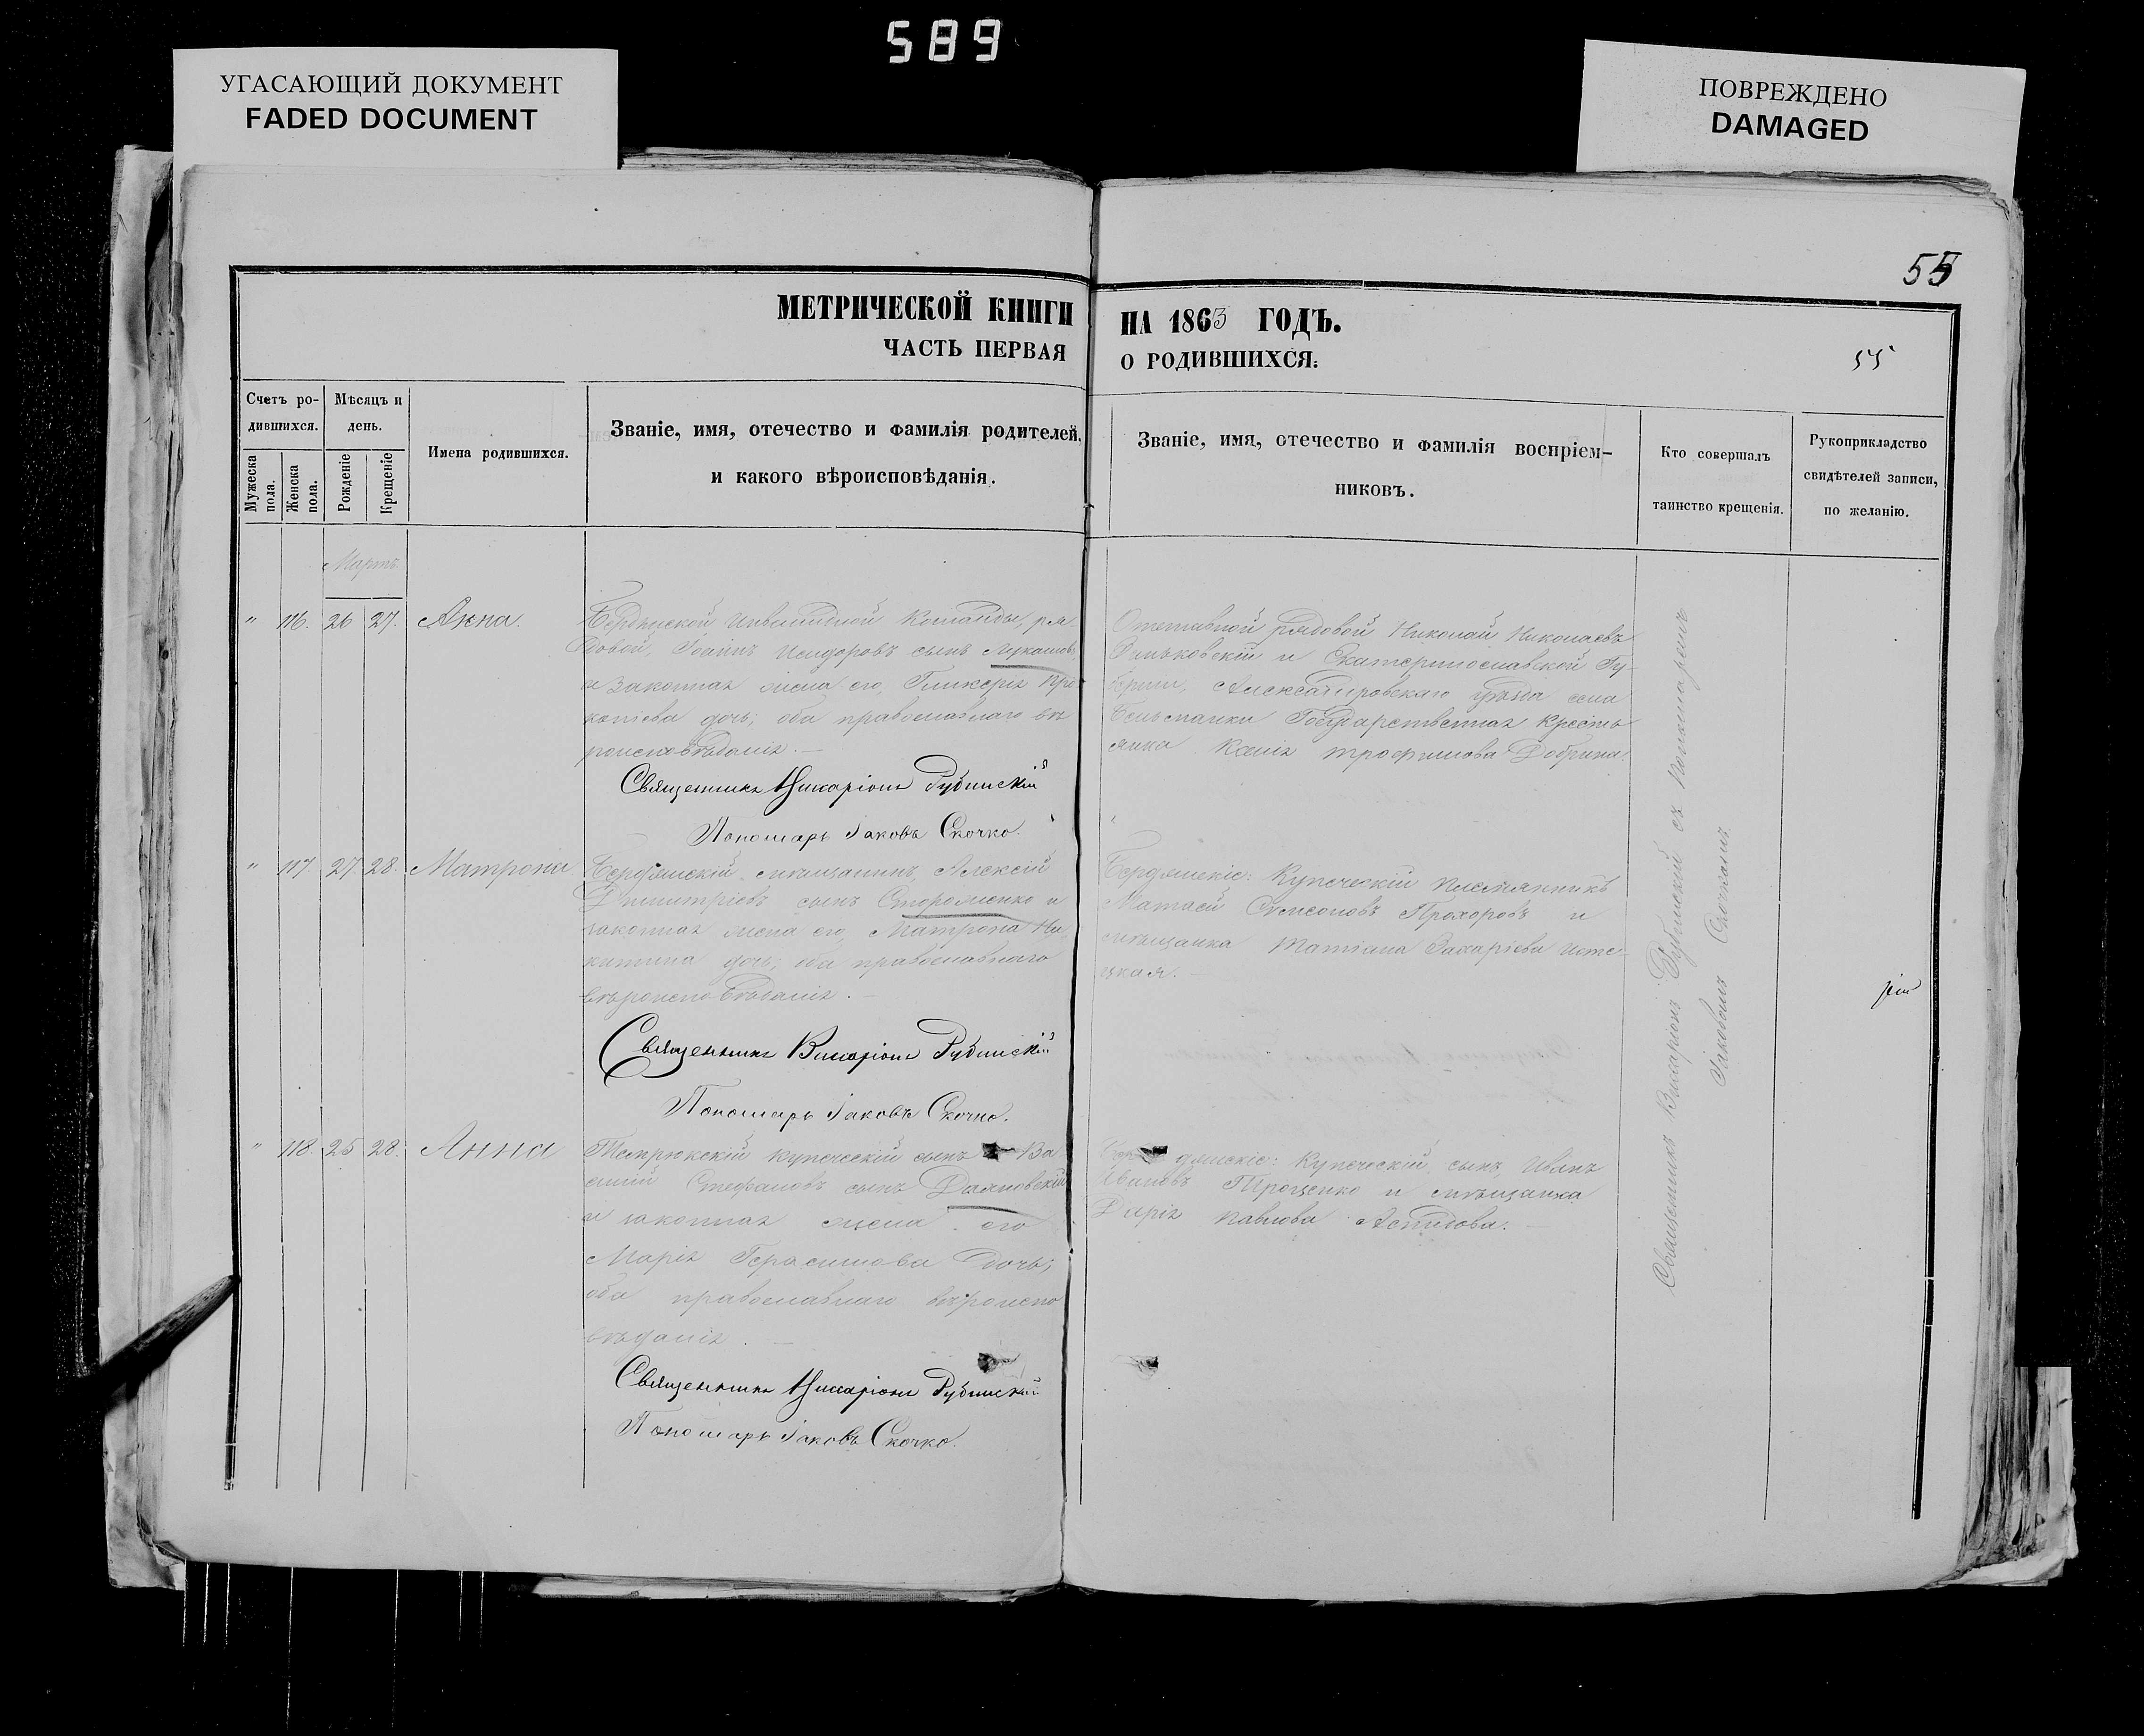 589
УГАСАЮЩИЙ ДОКУМЕНТ
FADED DOCUMENT
ПОВРЕЖДЕНО
DAMAGED
55
МЕТРИЧЕСКОЙ КНИГИ НА 1863 ГОДЪ.
ЧАСТЬ ПЕРВАЯ О РОДИВШИХСЯ.
55
Счетъ ро-
дившихся.
Мужеска пола.
Женска пола.
Мѣсяцъ и
день.
Рожденіе
Крещеніе
Имена родившихся.
Званіе, имя, отечество и фамилія родителей,
и какого вѣроисповѣданія.
Званіе, имя, отечество и фамилія воспріем-
никовъ.
Кто совершалъ
таинство крещенія.
Рукоприкладство
свидѣтелей записи,
по желанію.
Мартъ
" 116. 26 27. Анна.
Бердянской Инвалидной Команды, ря
довой, Іоаннъ Исидоровъ сынъ Лукашовъ,
и законная жена его, Гликерія Про
копіева дочь; оба православнаго вѣ
роисповѣданія. —
Священникъ Иларіонъ Рубинскій
Пономарь Іаковъ Скочко.
Отставной рядовой Николай Николаевъ
и Екатеринославской Гу-
берніи, Александровскаго уѣзда села
Бельманки Государственная Кресть
янка Ксенія Трофимова Добрина.
" 117. 27. 28. Матрона
Бердянскій мѣщанинъ, Алексій
Димитріевъ сынъ Стороженко и
законная жена его, Матрона Ни
китина дочь; оба православнаго
вѣроисповѣданія. —
Священникъ Виларіонъ Рубинскій
Пономарь Іаковъ Скочко.
Бердянскіе: Купеческій племянникъ
Матвей Симеоновъ Прохоровъ и
мѣщанка Татіана Захаріева
цкая. —
" 118. 25 28. Анна
Темрюкскій купеческій сынъ Ва
силій Стефановъ сынъ Даяновскій
и законная жена его
Марія Герасимова дочь;
оба православнаго вѣроиспо
вѣданія. —
Священникъ Иларіонъ Рубинскій
Пономарь Іаковъ Скочко.
дянскіе: Купеческій сынъ Иванъ
Ивановъ Троценко и мѣщанка
Дарія Павлова —
Священникъ Виларіонъ Рубинскій съ Пономаремъ
Іаковомъ Скочкомъ